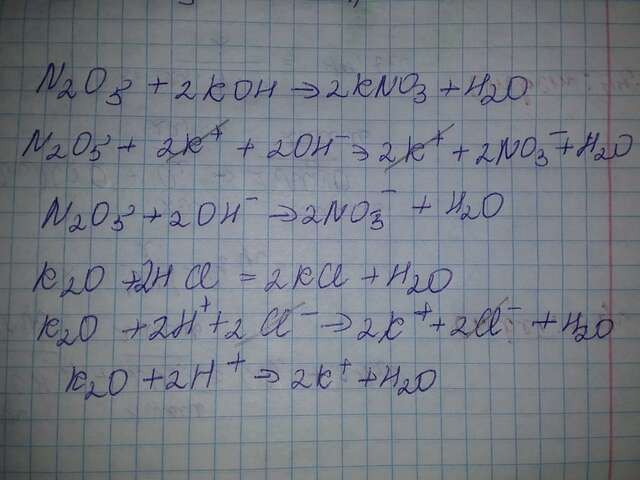 N₂O₅ + 2KOH → 2KNO₃ + H₂O
N₂O₅ + 2K⁺ + 2OH⁻ → 2K⁺ + 2NO₃⁻ + H₂O
N₂O₅ + 2OH⁻ → 2NO₃⁻ + H₂O
K₂O + 2HCl = 2KCl + H₂O
K₂O + 2H⁺ + 2Cl⁻ → 2K⁺ + 2Cl⁻ + H₂O
K₂O + 2H⁺ → 2K⁺ + H₂O